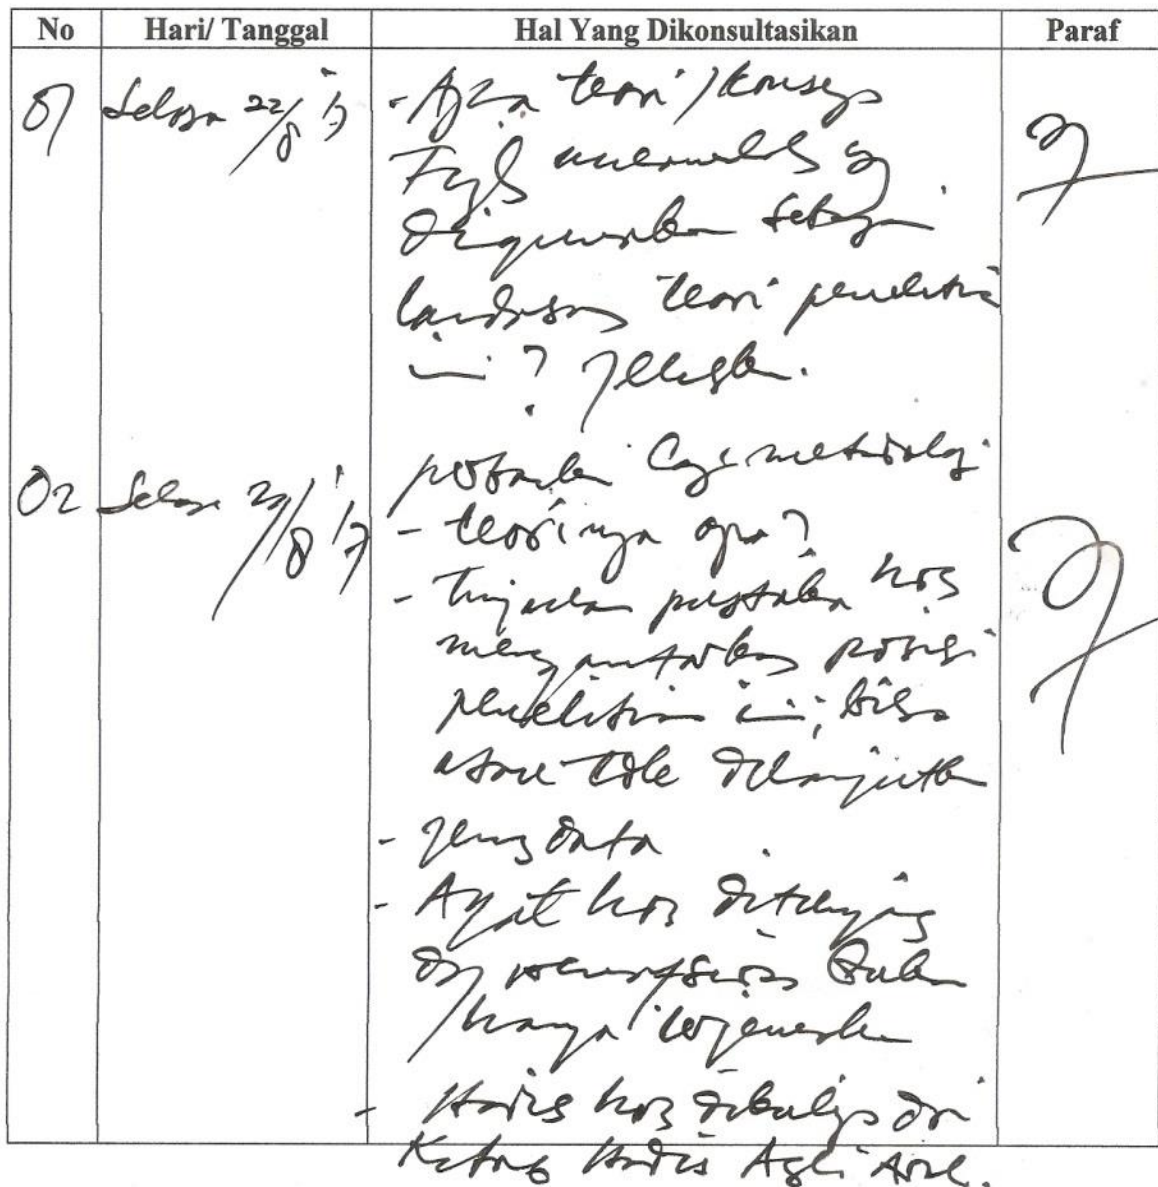 No Hari/ Tanggal Hal Yang Dikonsultasikan Paraf
01 Selasa 22/8 '17 - Apa teori / konsep
Fiqh muamalah yg
digunakan sebagai
landasan teori penelitian
ini? Jelaskan.
02 Selasa 29/8 '17 perbaiki lagi metodologi
- teorinya apa?
- Tinjauan pustaka hrs
mengantarkan posisi
penelitian ini, bisa
atau tdk dilanjutkan
- Jenis data
- Ayat hrs ditunjang
dg penafsiran bukan
hanya terjemahan
- Hadis hrs dikutip dri
Kitab Hadis Asli Arab.